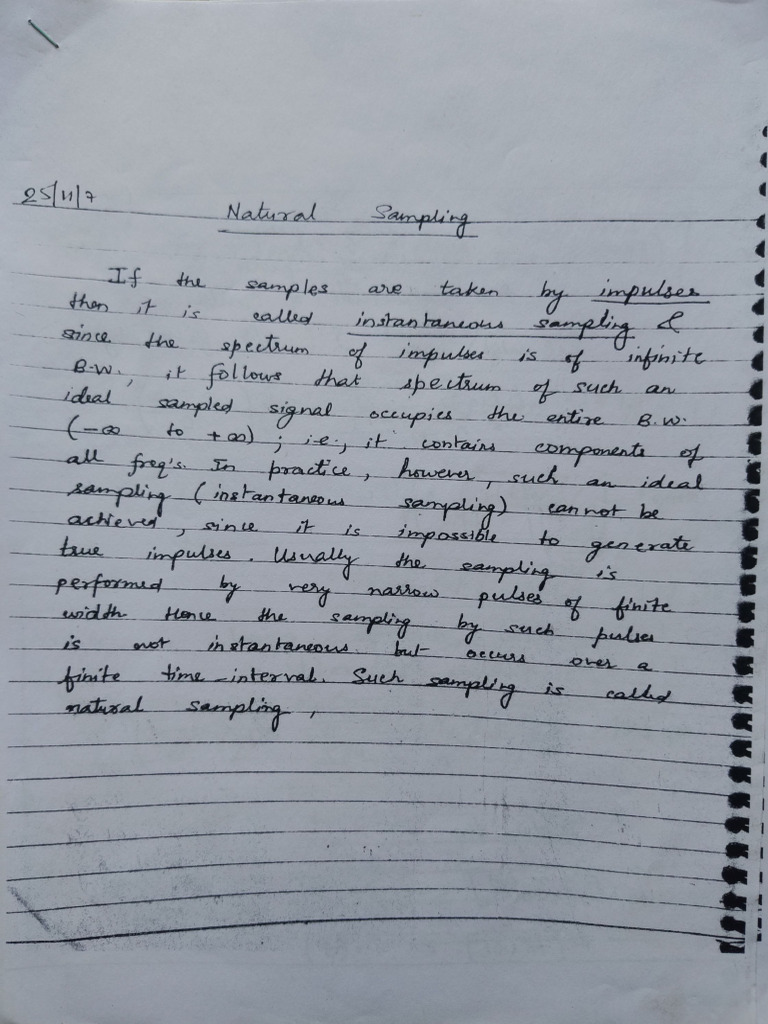 25/11/7
Natural Sampling
If the samples are taken by impulses
then it is called instantaneous sampling &
since the spectrum of impulses is of infinite
B.W., it follows that spectrum of such an
ideal sampled signal occupies the entire B.W.
(-∞ to +∞) ; i.e., it contains components of
all freq's. In practice, however, such an ideal
sampling (instantaneous sampling) cannot be
achieved, since it is impossible to generate
true impulses. Usually the sampling is
performed by very narrow pulses of finite
width Hence the sampling by such pulses
is not instantaneous but occurs over a
finite time-interval. Such sampling is called
natural sampling,